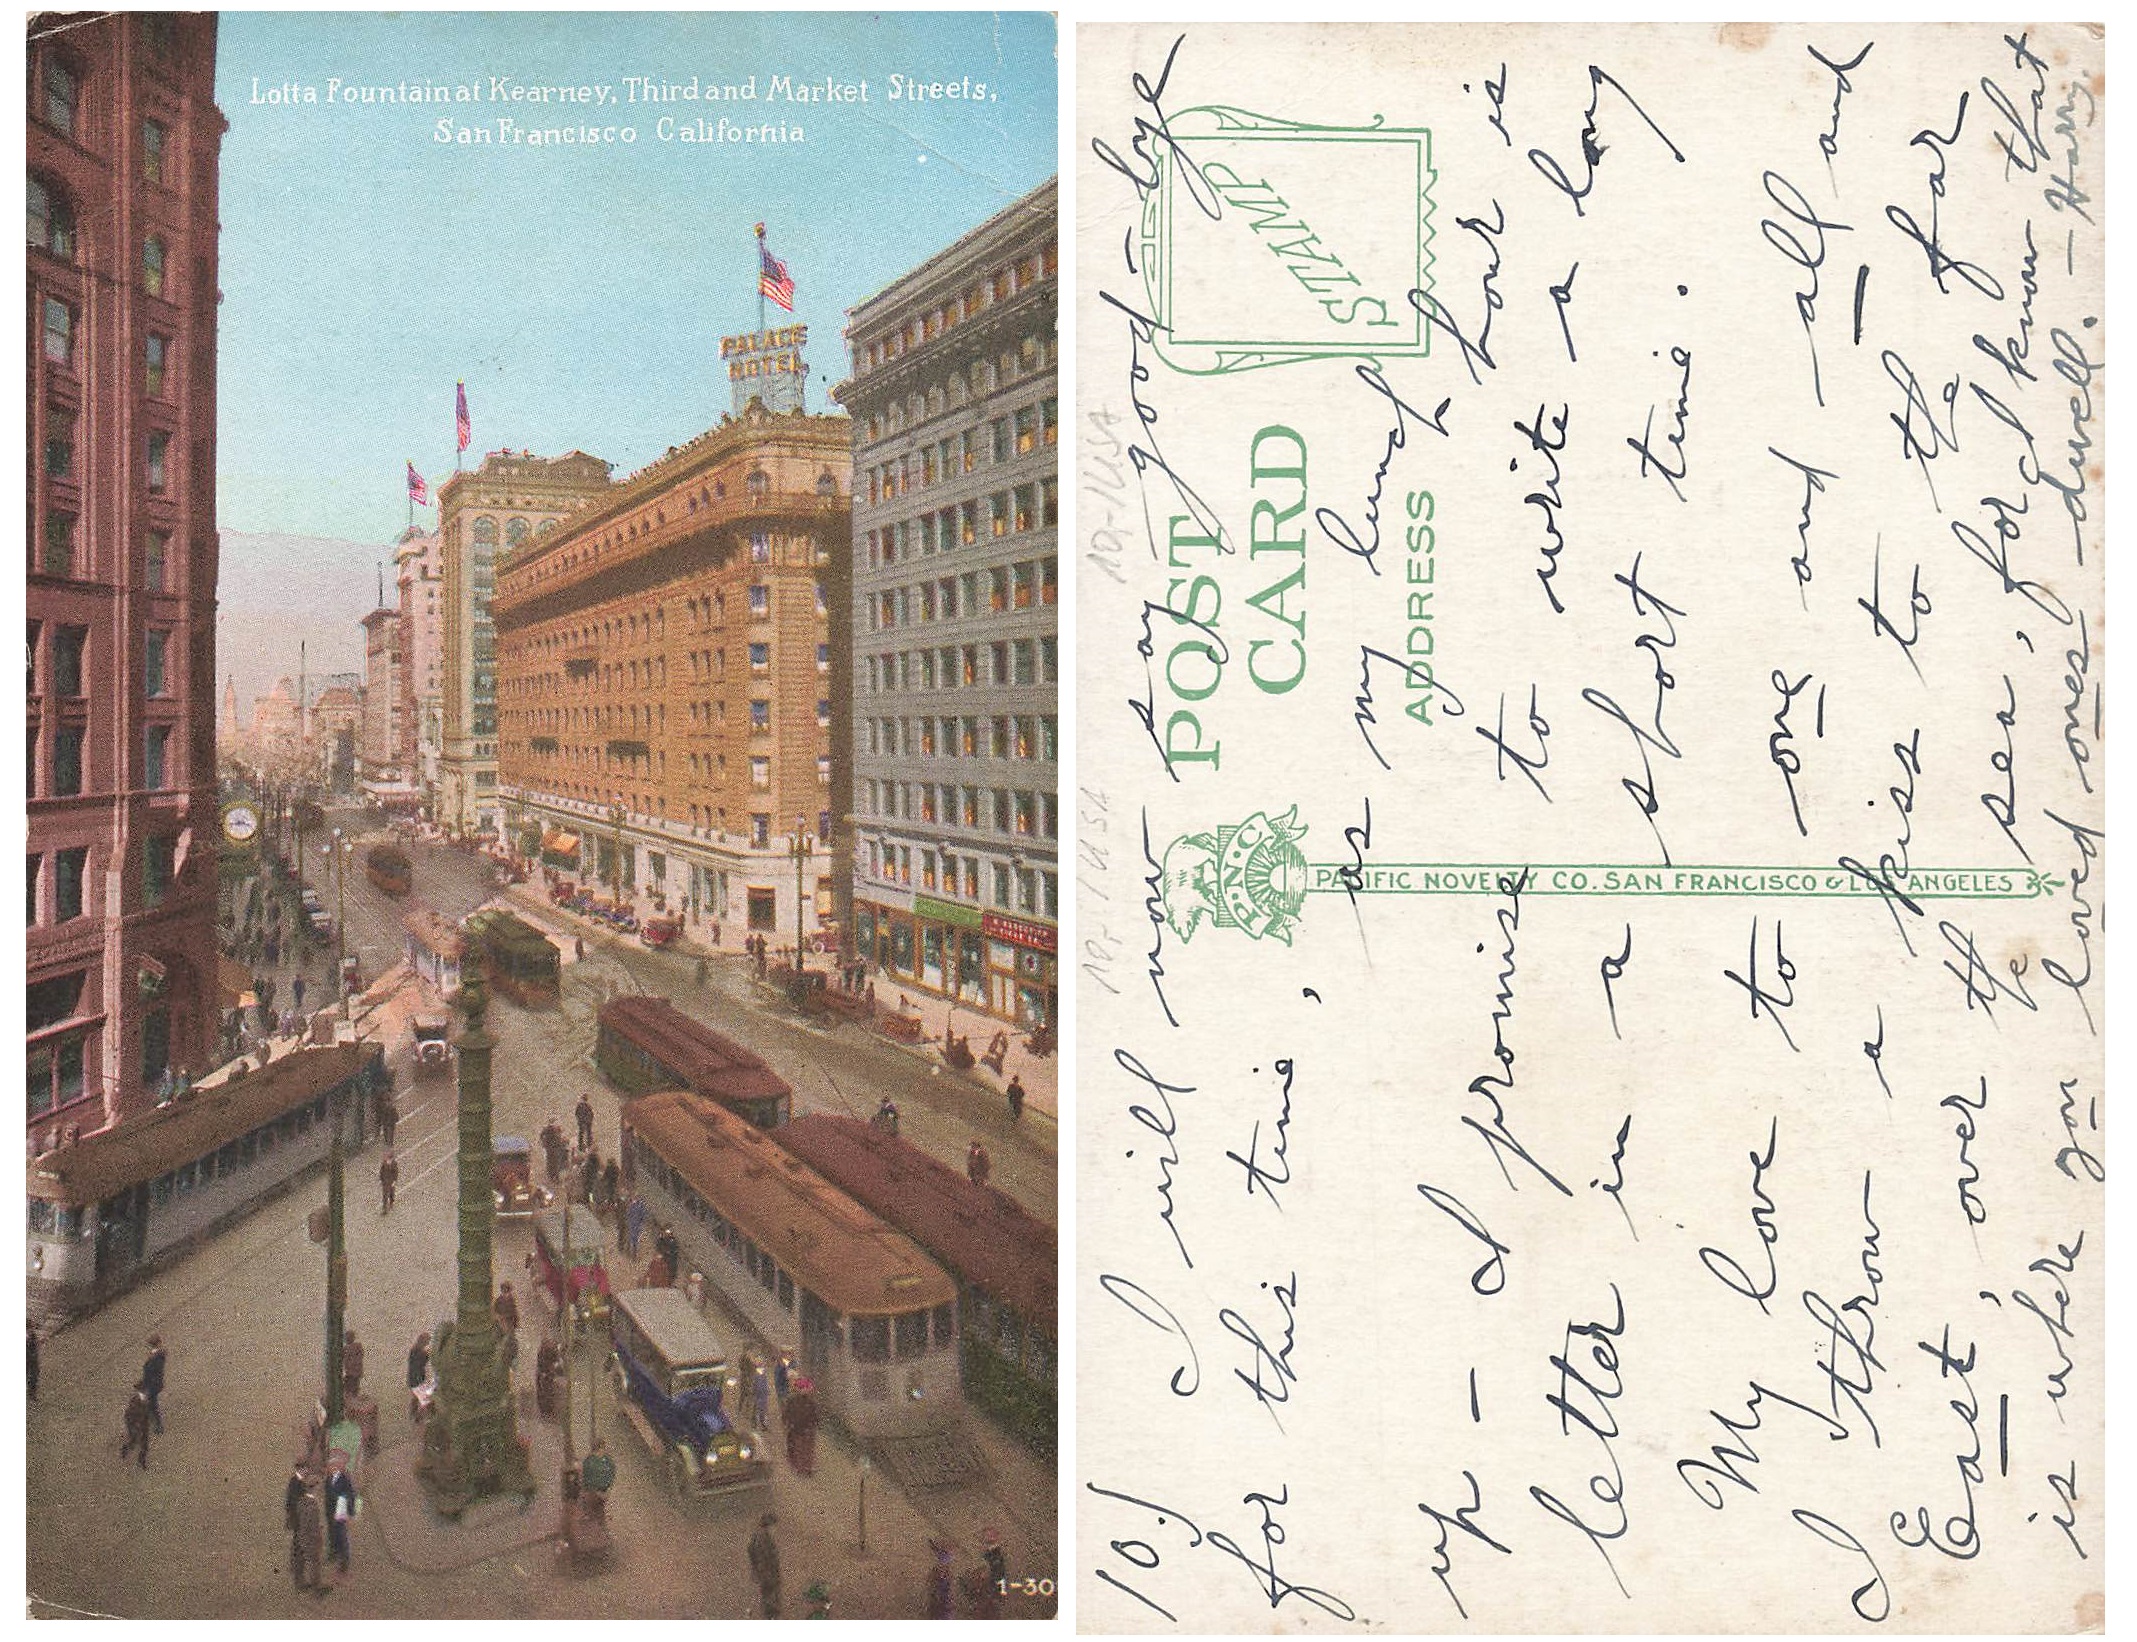 Lotta Fountain at Kearney, Third and Market Streets,
San Francisco California
PALACE
HOTEL
1-30
10.) I will now say good-bye
for this time,
as my lunch hour is
up - I promise to write a long
letter in a short time.
My love to one and all and
I throw a kiss to the far
East, over the sea, for I know that
is where you loved ones dwell. - Harry.
POST
CARD
ADDRESS
STAMP
P.N.C.
PACIFIC NOVELTY CO. SAN FRANCISCO & LOS ANGELES